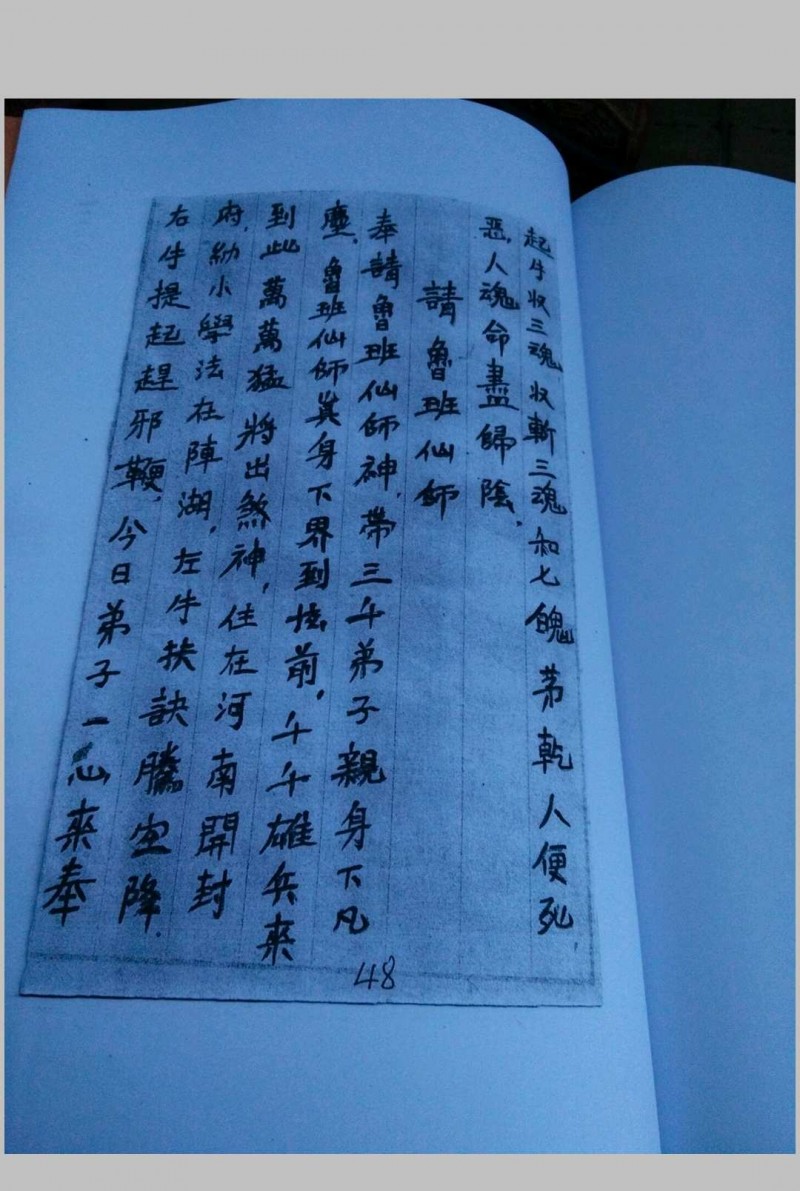 起手收三魂,收斬三魂和七魄茅乾人便死,
惡人魂命盡歸陰,
請魯班仙師
奉請魯班仙師神,帶三千弟子親身下凡
塵,魯班仙師真身下界到坛前,千千雄兵來
到此萬萬猛將出煞神,住在河南開封
府,幼小學法在陣湖,左手挾訣騰空降,
右手提起趕邪鞭,今日弟子一心來奉
48